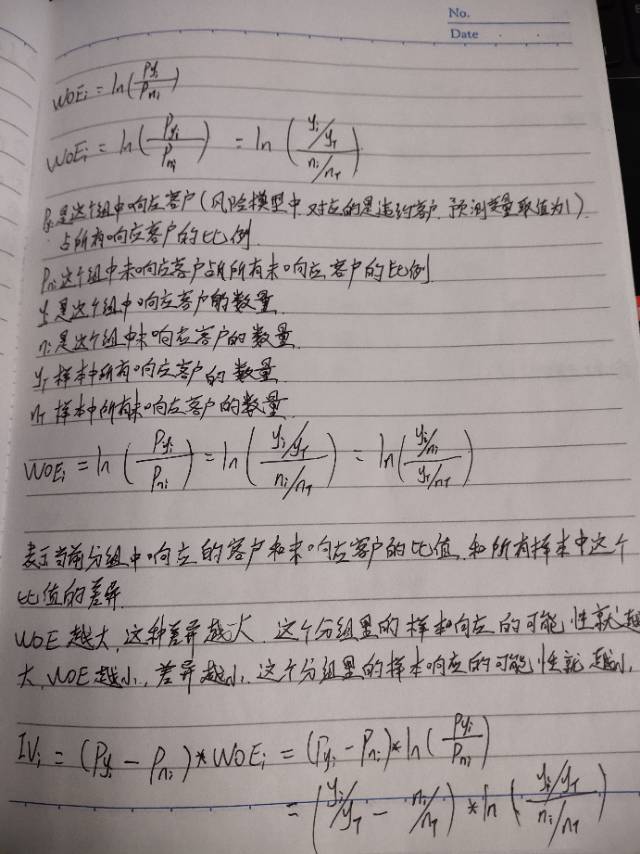 No.
Date
WOEi = ln(Pyi/Pni)
WOEi = ln(Pyi/Pni) = ln((yi/yT)/(ni/nT))
Pyi是这个组中响应客户(风险模型中,对应的是违约客户,预测变量取值为1)
占所有响应客户的比例.
Pni这个组中未响应客户占所有未响应客户的比例
yi是这个组中响应客户的数量.
ni是这个组中未响应客户的数量.
yT样本中所有响应客户的数量.
nT样本中所有未响应客户的数量.
WOEi = ln(Pyi/Pni) = ln((yi/yT)/(ni/nT)) = ln((yi/ni)/(yT/nT))
表示当前分组中响应的客户和未响应客户的比值,和所有样本中这个
比值的差异.
WOE越大,这种差异越大,这个分组里的样本响应的可能性就越
大,WOE越小,差异越小,这个分组里的样本响应的可能性就越小.
IVi = (Pyi - Pni)*WOEi = (Pyi - Pni)*ln(Pyi/Pni)
= (yi/yT - ni/nT)*ln((yi/yT)/(ni/nT))